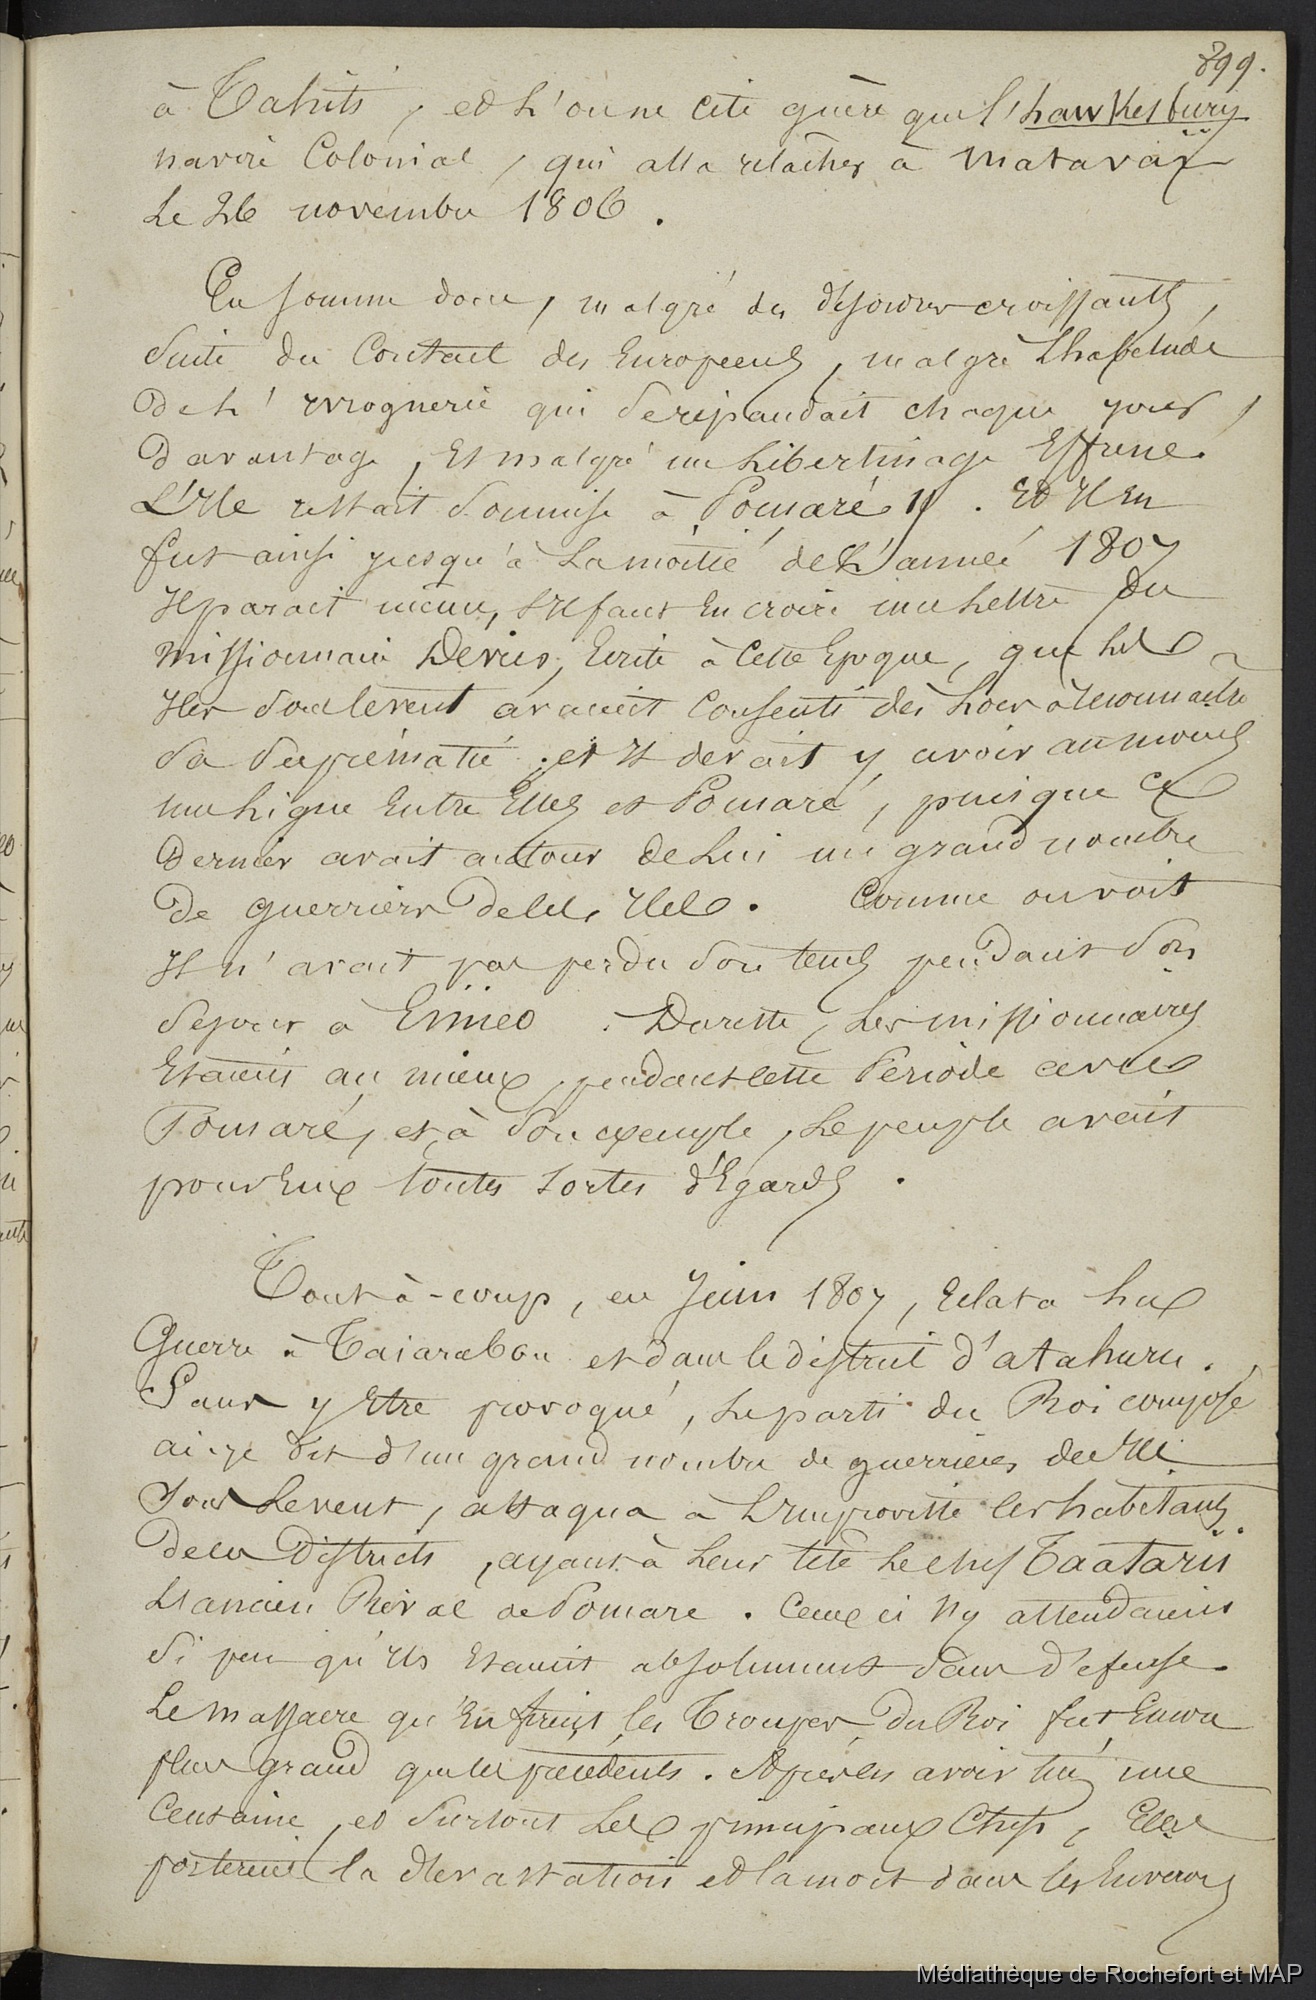 899.
à Tahiti, et l'on ne cite guère que l'hawkesbury
navire Colonial, qui alla relâcher à Matavaï
Le 26 novembre 1806.
En somme donc, malgré des désordres croissants,
suite du Contact des Européens, malgré L'habitude
de L'ivrognerie qui se répandait chaque jour
davantage, Et malgré un Libertinage Effréné.
L'Ile restait soumise à Pomaré II. Et Il En
fut ainsi jusqu'à La moitié de L'année 1807
Il parait même, S'Il faut En croire une Lettre du
missionnaire Devies, Ecrite à Cette Epoque, que Les
Iles sous le vent avaient Consenti dès Lors à reconnaitre
sa suprématie ; et Il devait y avoir au moins
une Ligue Entre Elles et Pomaré, puisque Ce
dernier avait autour de Lui un grand nombre
de guerriers de ces Iles. Comme on voit
Il n'avait pas perdu son tems pendant son
séjour à Eïmeo. Du reste, Les missionnaires
Etaient au mieux, pendant cette Période avec
Pomaré, et, à son exemple, Le peuple avait
pour Eux toutes sortes d'Egards.
Tout-à-coup, en Juin 1807, Eclata La
Guerre à Taiarabou et dans le district d'atahuru.
Sans y Etre provoqué, Le parti du Roi composé
ai-je dit d'un grand nombre de guerriers des Iles
sous Le vent, attaqua à L'improviste les habitants
de ces Districts, ayant à Leur tête Le chef Taatarii
L'ancien Rival de Pomare. Ceux ci s'y attendaient
si peu qu'Ils Etaient absolument sans défense.
Le massacre qu'En firent les Troupes du Roi fut Encore
plus grand que les précédents. Après en avoir tué une
Centaine, et surtout Les principaux Chefs, Elles
portèrent la dévastation et la mort dans les Environs
Médiathèque de Rochefort et MAP